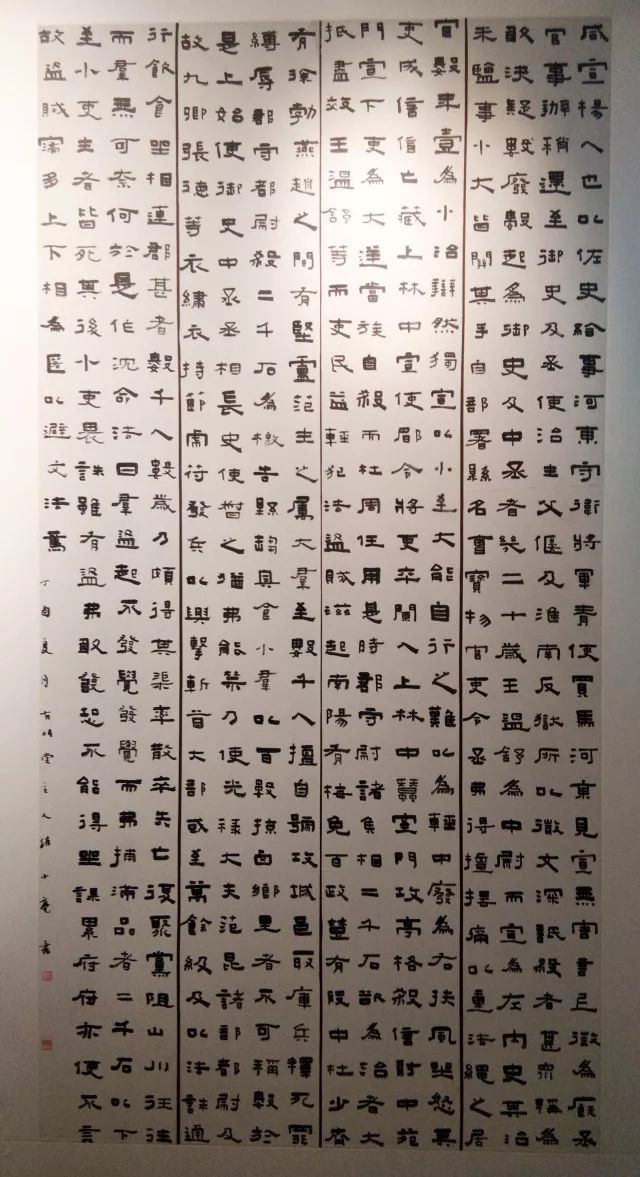 咸宣楊人也以佐史給事河東守衛將軍青使買馬河東見宣無害言上徵為廄丞
官事辦稍遷至御史及丞使治主父偃及淮南反獄所以微文深詆殺者甚眾稱為
敢決疑數廢數起為御史及中丞者幾二十歲王溫舒為中尉而宣為左內史其治
米鹽事小大皆關其手自部署縣名曹寶物官吏令丞弗得擅搖痛以重法繩之居
官數年壹為小治辯然獨宣以小至大能自行之難以為輕中廢為右扶風坐怒其
吏成信信亡藏上林中宣使郿令將吏卒闌入上林中蠶室門攻亭格殺信射中苑
門宣下吏為大逆當族自殺而杜周任用是時郡守尉諸侯相二千石欲為治者大
抵盡效王溫舒等而吏民益輕犯法盜賊滋起南陽有梅免百政楚有段中杜少齊
有徐勃燕趙之間有堅盧范主之屬大羣至數千人擅自號攻城邑取庫兵釋死罪
縛辱郡守都尉殺二千石為檄告縣趨具食小羣以百數掠鹵鄉里者不可稱數於
是上始使御史中丞丞相長史使督之猶弗能禁乃使光祿大夫范昆諸部都尉及
故九卿張德等衣繡衣持節虎符發兵以興擊斬首大部或至萬餘級及以法誅通
行飲食坐相連郡甚者數千人數歲乃頗得其渠率散卒失亡復聚黨阻山川往往
而羣無可奈何於是作沈命法曰羣盜起不發覺發覺而弗捕滿品者二千石以下
至小吏主者皆死其後小吏畏誅雖有盜弗敢發恐不能得坐課累府府亦使不言
故盜賊寖多上下相為匿以避文法焉
丁酉夏月 堂主人 書